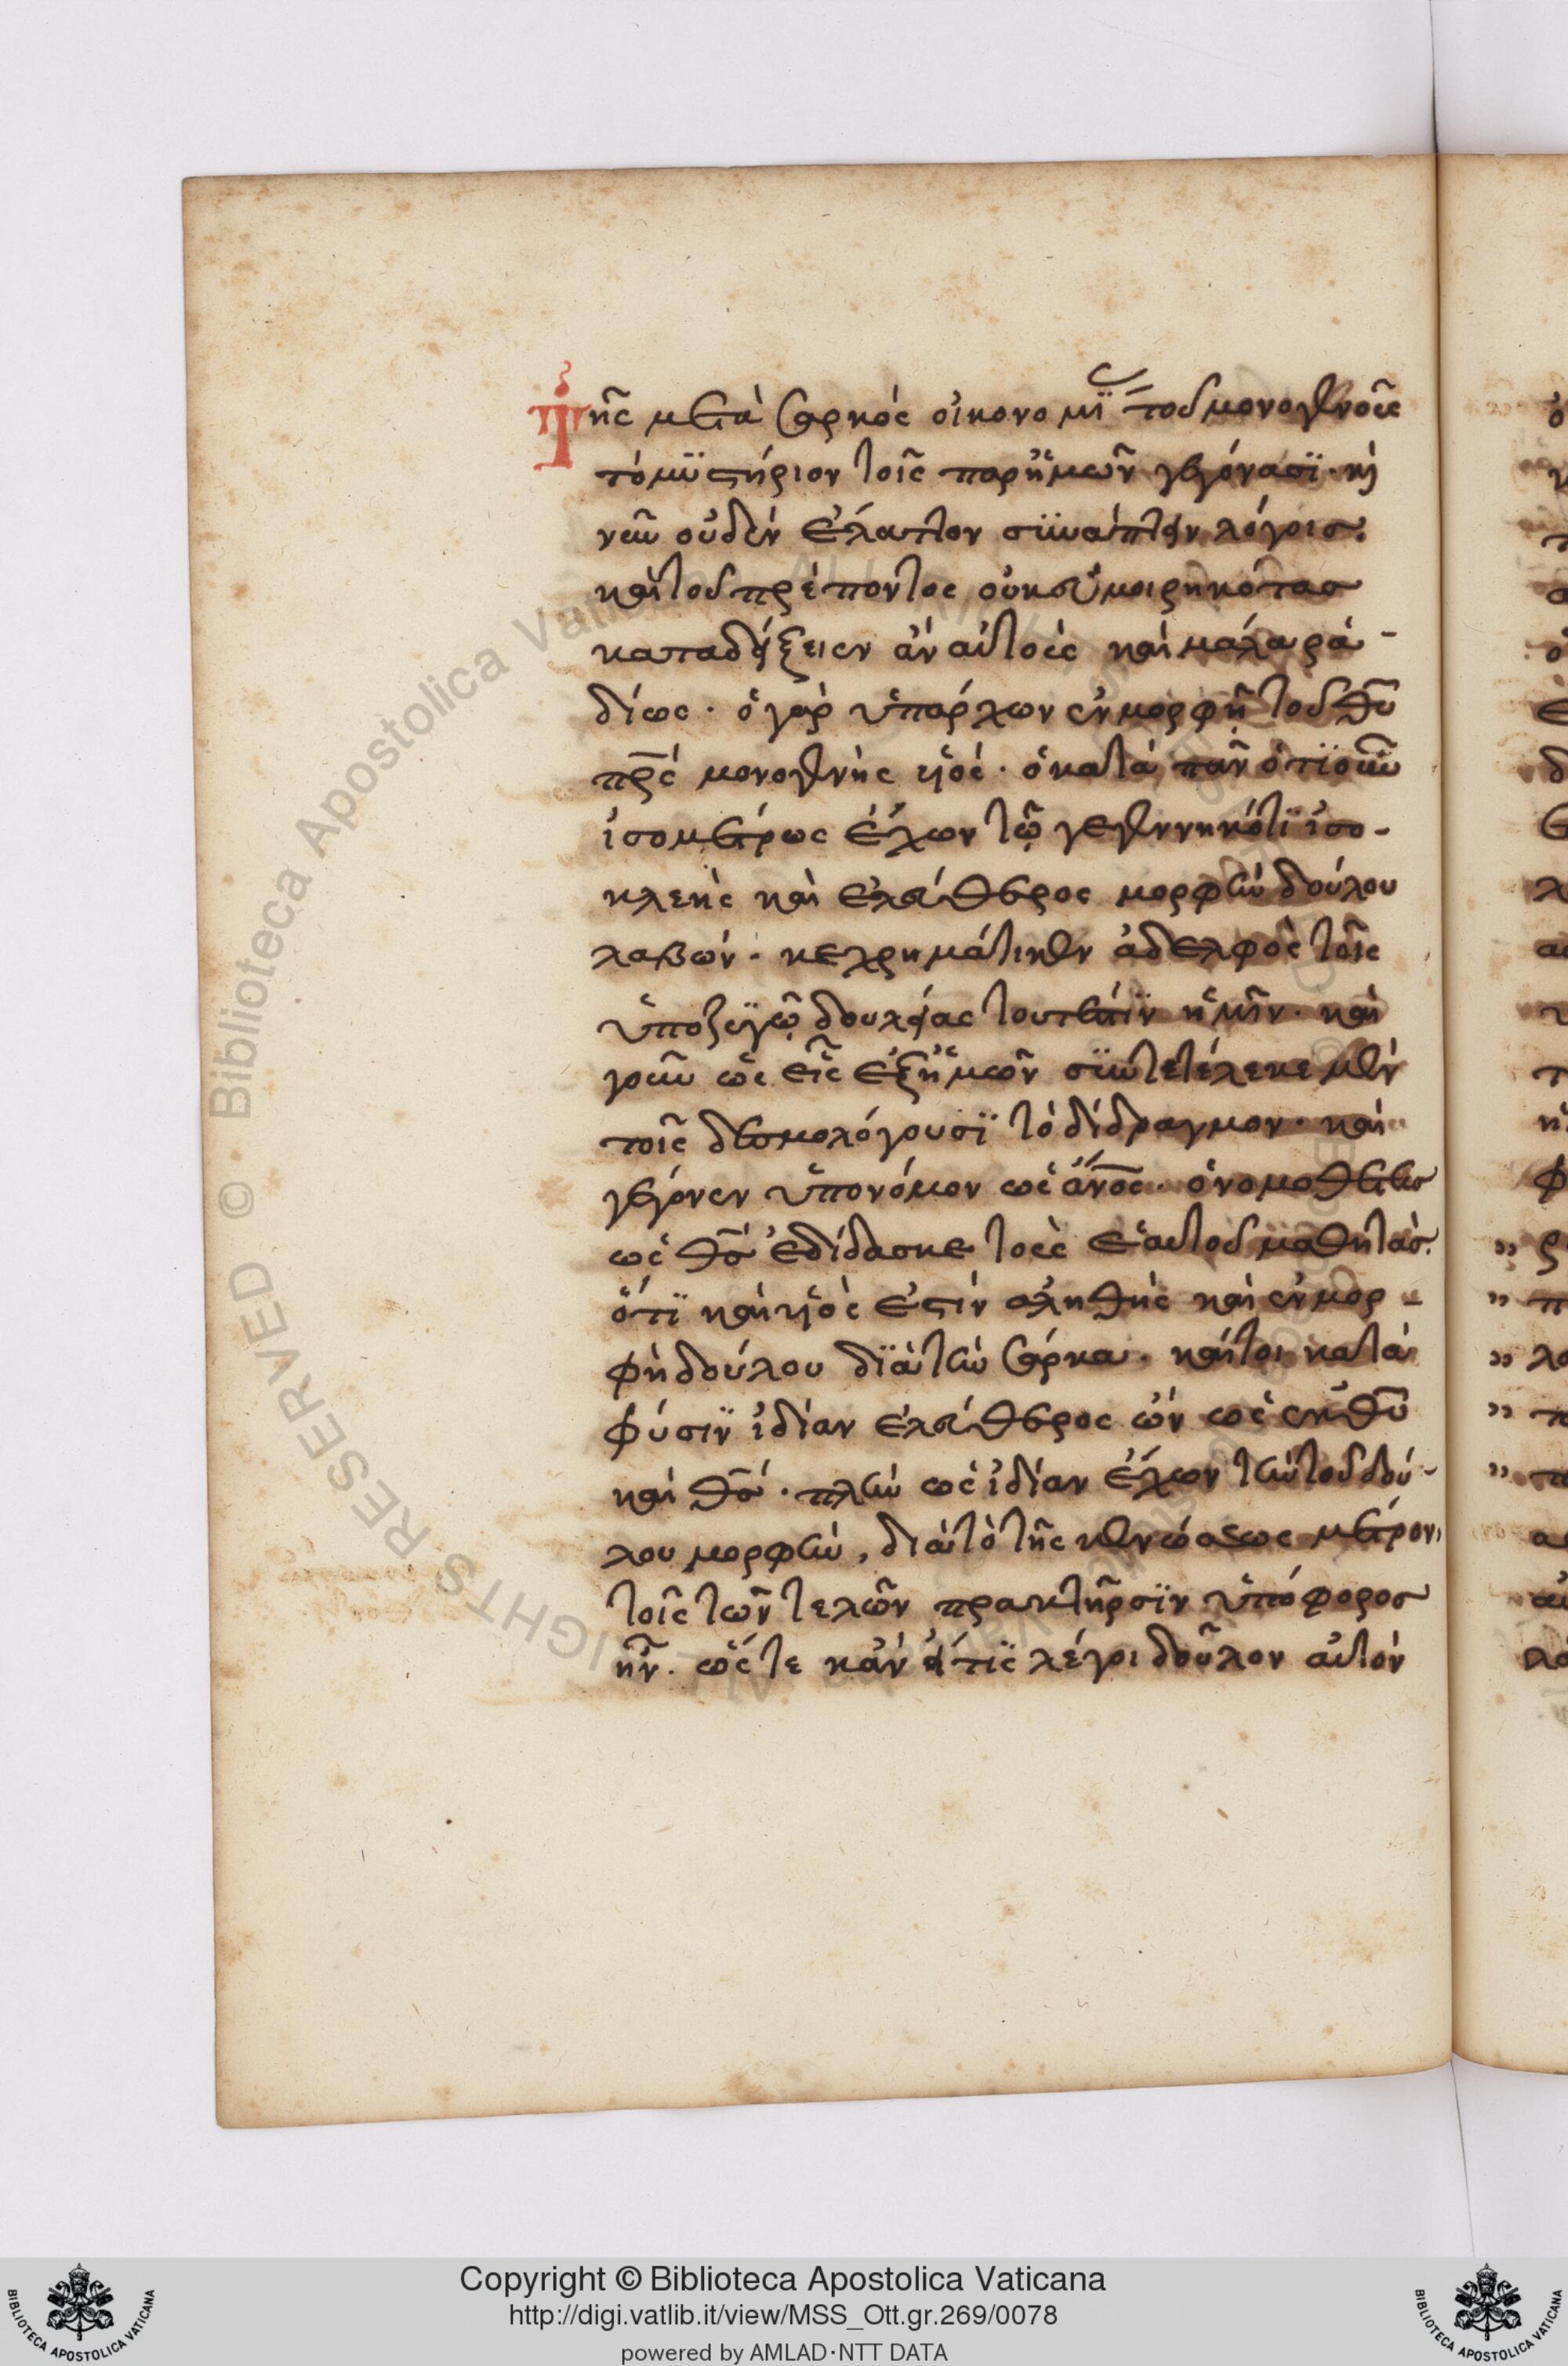 Τῆς μετὰ σαρκὸς οἰκονομί(ας) τοῦ μονογενοῦς
τὸ μϋστήριον τοῖς παρ' ἡμῶν γεγόνασϊ· κι
νεῖν οὐδὲν ἔλαττον σϋνάπτειν λόγοις.
καὶ τοῦ πρέποντος οὐκ εὐμοιρηκότας
καταδείξειεν ἂν αὐτοὺς καὶ μάλα ρα-
δίως· ὁ γὰρ ὑπάρχων ἐν μορφῇ τοῦ θυ
πρς μονογενὴς υἱός· ὁ κατὰ πᾶν ὁτϊοῦν
ἰσομέτρως ἔχων τῷ γεγεννηκότϊ ἰσο-
κλεὴς καὶ ἐλεύθερος μορφὴν δούλου
λαβών· κεχρημάτικεν ἀδελφὸς τοῖς
ὑποζυγῷ δουλείας τουτέστϊν ἡμῖν· καὶ
γοῦν ὡς εἷς ἐξ ἡμῶν σϋντετέλεκε μὲν
τοῖς δεσμολόγουσϊ τὸ δίδραγμον· καὶ
γέγονεν ὑπονόμον ὡς ανος· ὁ νομοθέτης
ὡς θς ἐδίδασκε τοὺς ἑαυτοῦ μαθητάς.
ὅτϊ καὶ υἱός ἐστιν ἀληθὴς καὶ ἐν μορ-
φῇ δούλου δϊὰ τὴν σάρκα· καίτοι κατὰ
φύσϊν ἰδίαν ἐλεύθερος ὢν ὡς ἐκ θυ
καὶ θς· πλὴν ὡς ἰδίαν ἔχων τὴν τοῦ δού-
λου μορφὴν, διὰ τὸ τῆς κενώσεως μέτρον,
τοῖς τῶν τελῶν πρακτῆρσϊν ὑπόφορος
ἦν. ὥστε κἂν εἴ τϊς λέγοι δοῦλον αὐτὸν
Copyright © Biblioteca Apostolica Vaticana
http://digi.vatlib.it/view/MSS_Ott.gr.269/0078
powered by AMLAD·NTT DATA